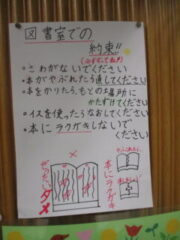 図書室での
約束!!
(必ずまもってね♪)
•さわがないでください
•本がやぶれたら直してください
•本をかりたら、もとの場所に
かたずけてください
•イスを使ったらなおしてください
•本にラクガキしないで
ください
ぜったい
ダメ
本にラクガキ